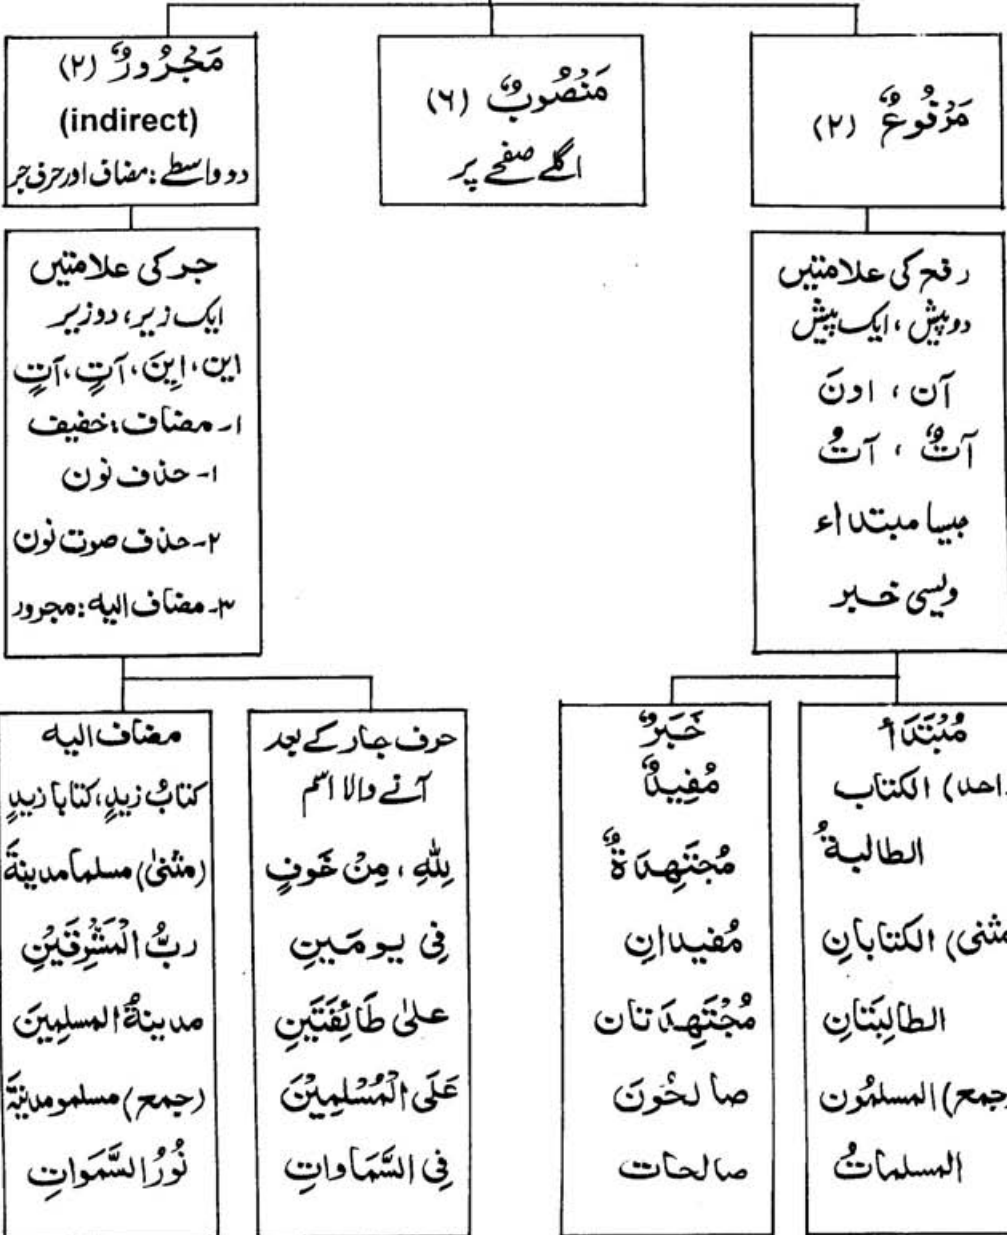 مَرْفُوعٌ (۲)
مَنْصُوبٌ (۶)
اگلے صفحے پر
مَجْرُورٌ (۲)
(indirect)
دو واسطے: مضاف اور حرف جر
رفع کی علامتیں
دو پیش، ایک پیش
آن ، اونَ
آتٌ ، آتُ
جیسا مبتداء
ویسی خبر
جر کی علامتیں
ایک زیر، دو زیر
این، اِینَ، آتِ، آتٍ
۱۔ مضاف: خفیف
۱۔ حذف نون
۲۔ حذف صوت نون
۳۔ مضاف الیہ: مجرور
مُبْتَدَأ
احد) الکتاب
الطالبۃُ
مثنی) الکتابانِ
الطالِبَتَانِ
جمع) المسلمُون
المسلماتُ
خَبَرٌ
مُفِیدٌ
مُجْتَهِدَةٌ
مُفیدانِ
مُجْتَهِدَتان
صالحُونَ
صالحات
حرف جار کے بعد
آنے والا اسم
لِلّٰهِ ، مِنْ خَوفٍ
فِی یومَینِ
علیٰ طَائِفَتَینِ
عَلَی الْمُسْلِمِیْنَ
فِی السَّمَاواتِ
مضاف الیہ
کتابُ زیدٍ، کتابا زیدٍ
(مثنیٰ) مسلما مدینۃَ
ربُّ الْمَشْرِقَیْنِ
مدینۃُ المسلِمِینَ
(جمع) مسلمو مدینۃَ
نُوْرُ السَّمَواتِ